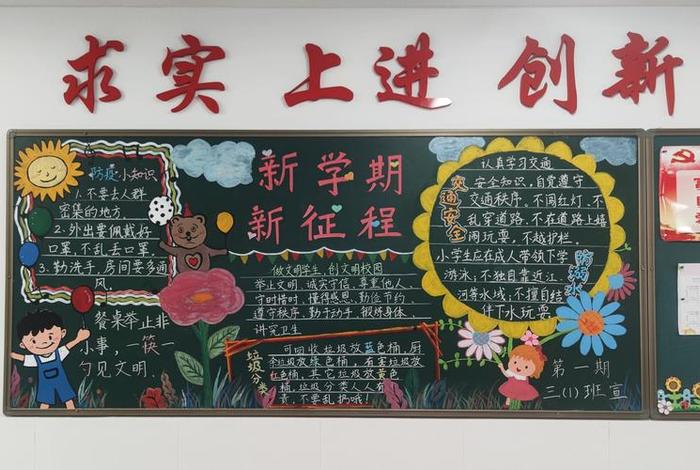 求实 上进 创新
防疫小知识
1.不要去人群
密集的地方
2.外出要佩戴好
口罩,不乱丢口罩。
3.勤洗手,房间要多通
风
餐桌举止非
小事,一筷一
勺见文明.
新学期
新征程
做文明学生,创文明校园
举止文明,诚实守信,尊重他人,
守时惜时,懂得感恩,勤俭节约,
遵守秩序,勤于动手,锻炼身体,
讲究卫生
垃圾分类
可回收垃圾放蓝色桶,厨
余垃圾放绿色桶,有害垃圾放
红色桶,其它垃圾放黄色
桶,垃圾分类人人有
责,不要乱扔哦!
交通安全
认真学习交通
安全知识,自觉遵守
交通秩序.不闯红灯.不
乱穿道路.不在道路上嬉
闹玩耍,不越护栏.
防溺水
小学生应在成人带领下学
游泳,不独自靠近江、
河等水域,不擅自结
伴下水玩耍
第一期
三(1)班宣